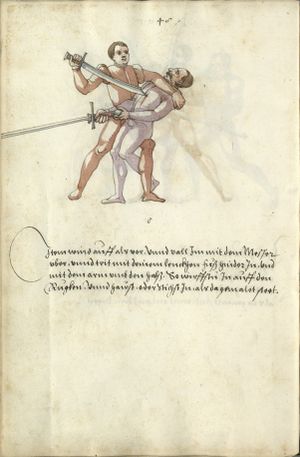 46
Item wind auff als vor. vnnd vall Im mit dem Messer
vber. vnnd trit mit deinem lennckhen fueß hinder In. vnd
mit dem arm vmb den halß. So wirffstu In auff den
Rugken. vnnd haust oder stichst In als da gemalet stet.